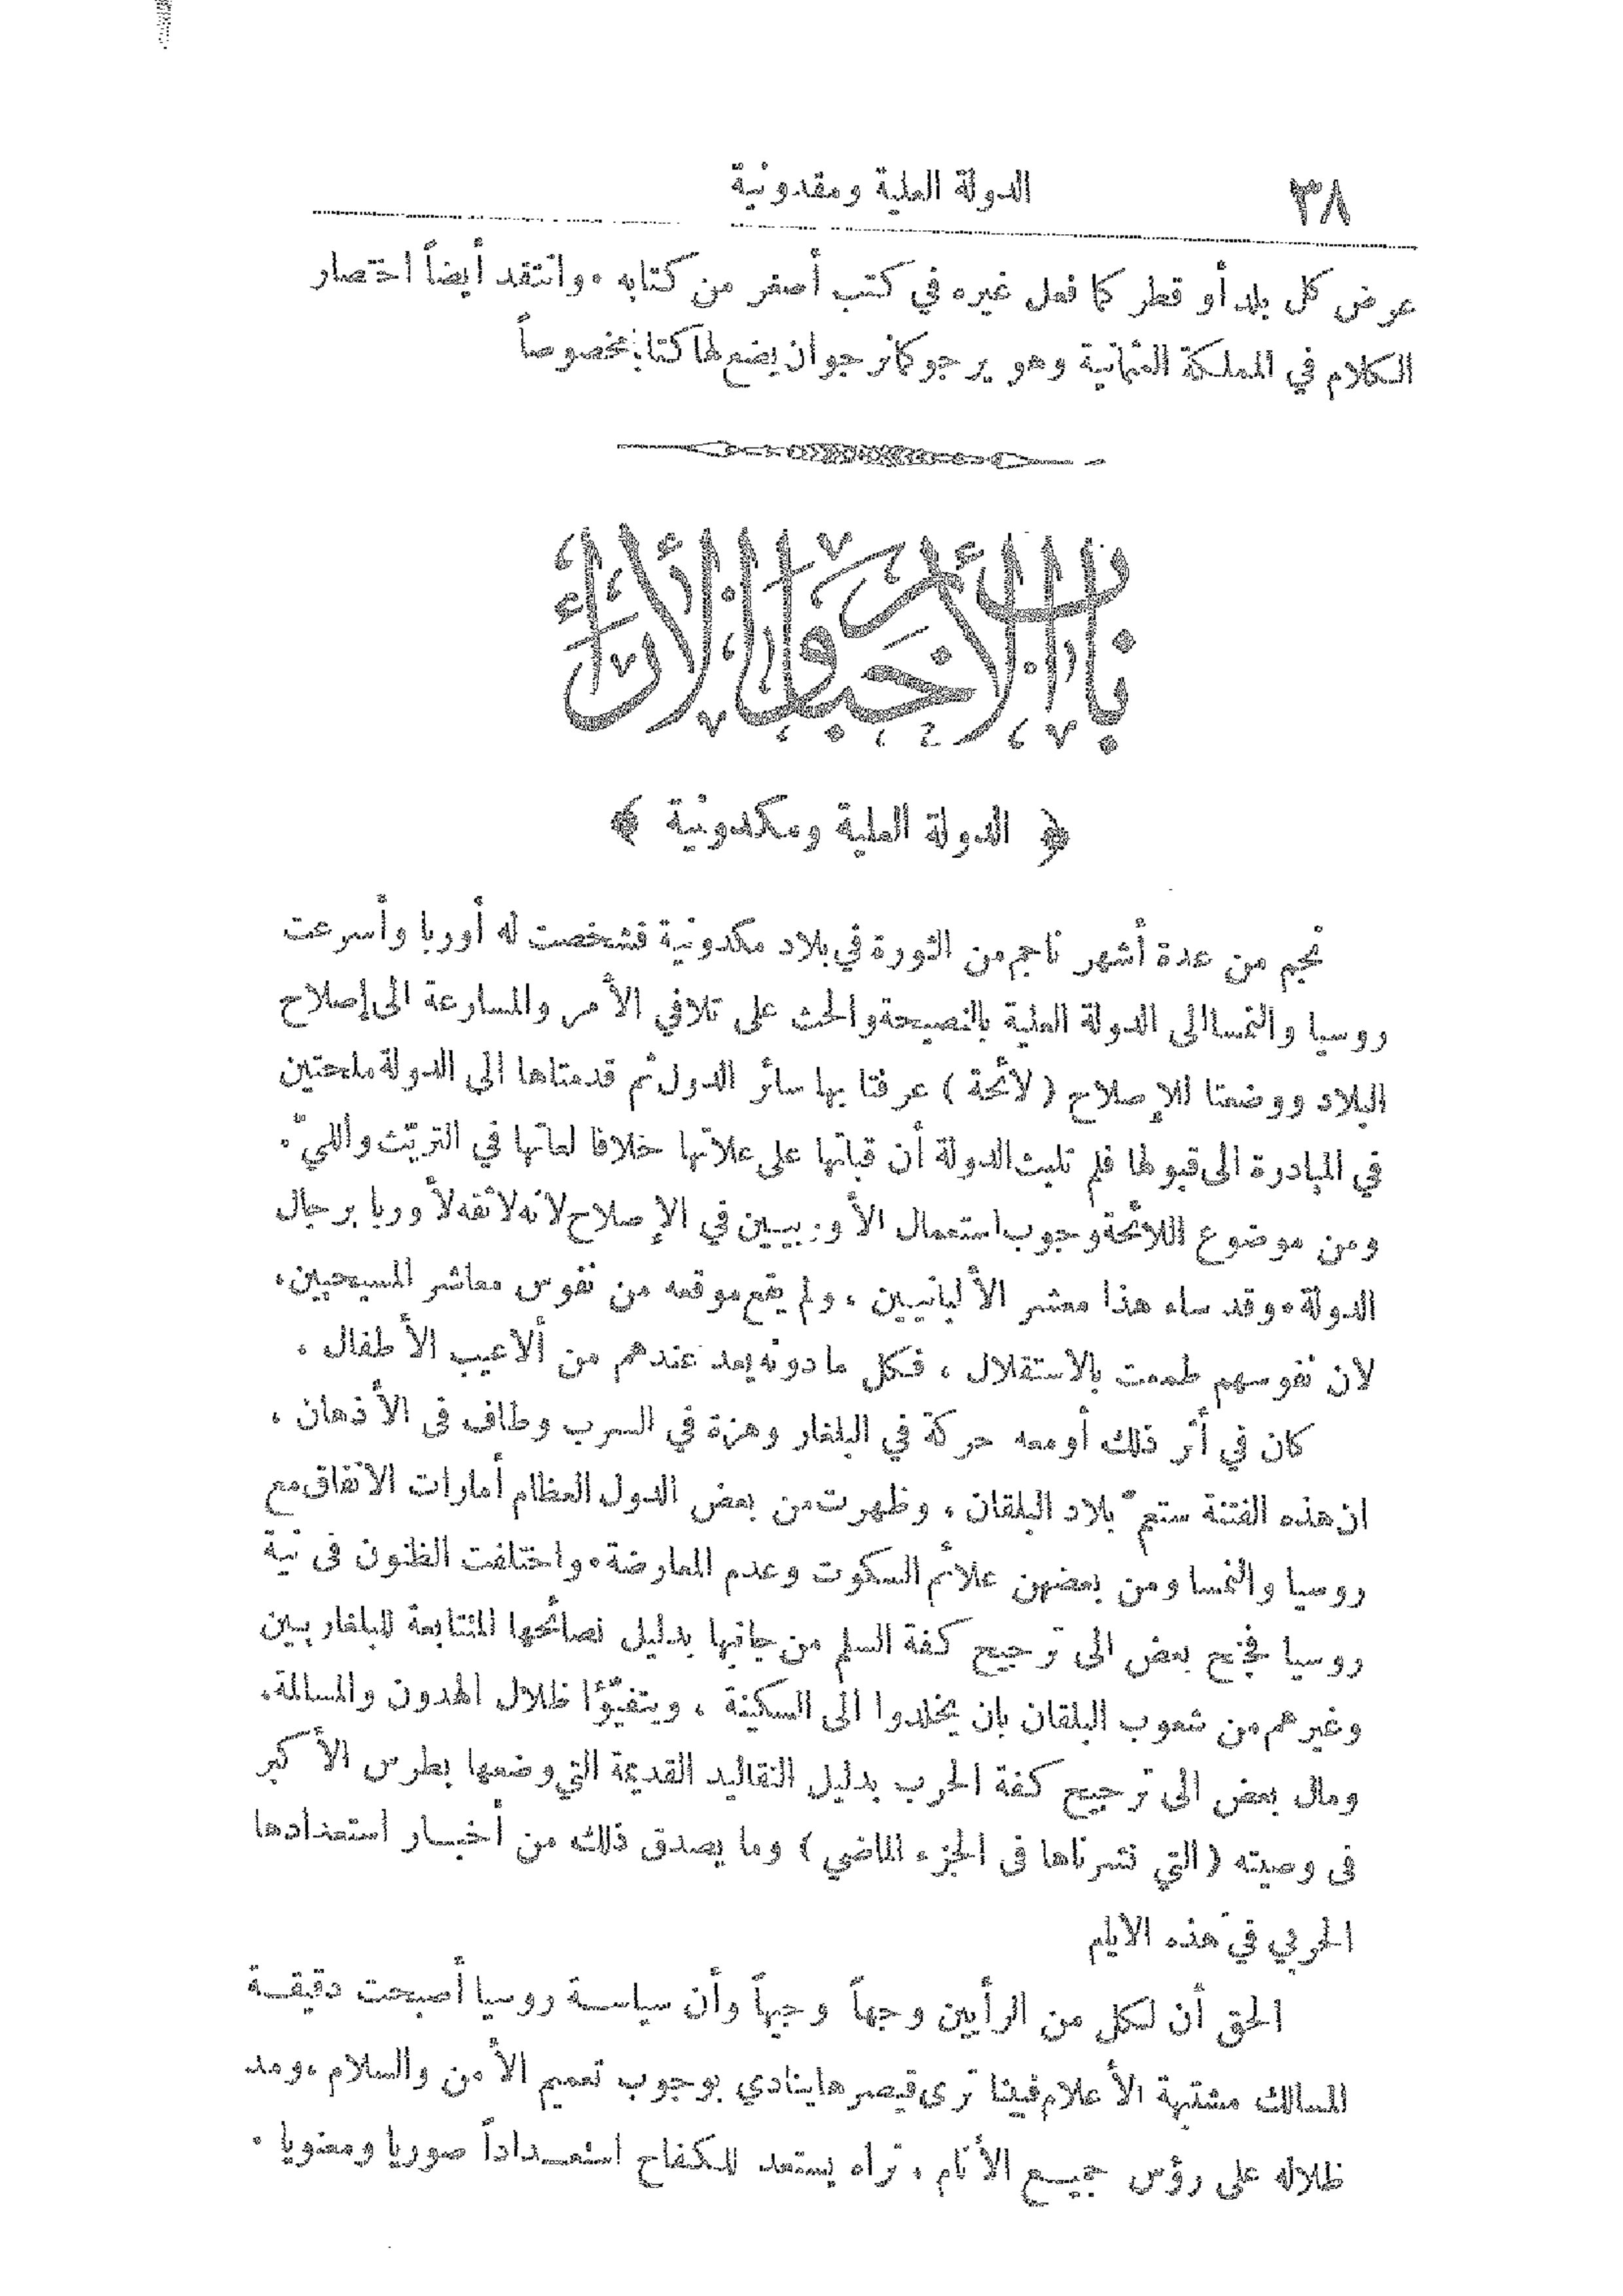 ٣٨ الدولة العلية ومقدونية
عرض كل بلد أو قطر كما فعل غيره في كتب أصغر من كتابه ٠ وانتقد أيضاً اختصار
الكلام في المملكة العثمانية وهو يرجو كما نرجو ان يضع لها كتابا مخصوصاً
باب الأخبار والآراء
﴿ الدولة العلية ومكدونية ﴾
نجم من عدة أشهر ناجم من الثورة في بلاد مكدونية فشخصت له أوربا وأسرعت
روسيا والنمسا الى الدولة العلية بالنصيحة والحث على تلافي الأمر والمسارعة الى إصلاح
البلاد ووضعتا للإصلاح ( لائحة ) عرفتا بها سائر الدول ثم قدمتاها الى الدولة ملحتين
في المبادرة الى قبولها فلم تلبث الدولة أن قبلتها على علاتها خلافا لعادتها في التريّث واللّيّ .
ومن موضوع اللائحة وجوب استعمال الأوربيين في الإصلاح لانه لا ثقة لأوربا برجال
الدولة ٠ وقد ساء هذا معشر الألبانيين ، ولم يقع موقعه من نفوس معاشر المسيحيين ،
لان نفوسهم طمعت بالاستقلال ، فكل ما دونه يعد عندهم من ألاعيب الأطفال .
كان في أثر ذلك أو معه حركة في البلغار وهزة في السرب وطاف فى الأذهان ،
ان هذه الفتنة ستعمّ بلاد البلقان ، وظهرت من بعض الدول العظام أمارات الاتفاق مع
روسيا والنمسا ومن بعضهن علائم السكوت وعدم المعارضة ٠ واختلفت الظنون فى نية
روسيا فجنح بعض الى ترجيح كفة السلم من جانبها بدليل نصائحها المتتابعة للبلغاريين
وغيرهم من شعوب البلقان بان يخلدوا الى السكينة ، ويتفيّؤا ظلال الهدون والمسالمة ،
ومال بعض الى ترجيح كفة الحرب بدليل التقاليد القديمة التي وضعها بطرس الأكبر
فى وصيته ( التي نشرناها فى الجزء الماضي ) وما يصدق ذلك من أخبـار استعدادها
الحربي في هذه الايام
الحق أن لكل من الرأيين وجهاً وجيهاً وأن سياسـة روسيا أصبحت دقيقـة
المسالك مشتبهة الأعلام فبينا ترى قيصرها ينادي بوجوب تعميم الأمن والسلام ، ومد
ظلاله على رؤس جميـع الأنام ، تراه يستعد للكفاح استعـداداً صوريا ومعنويا .